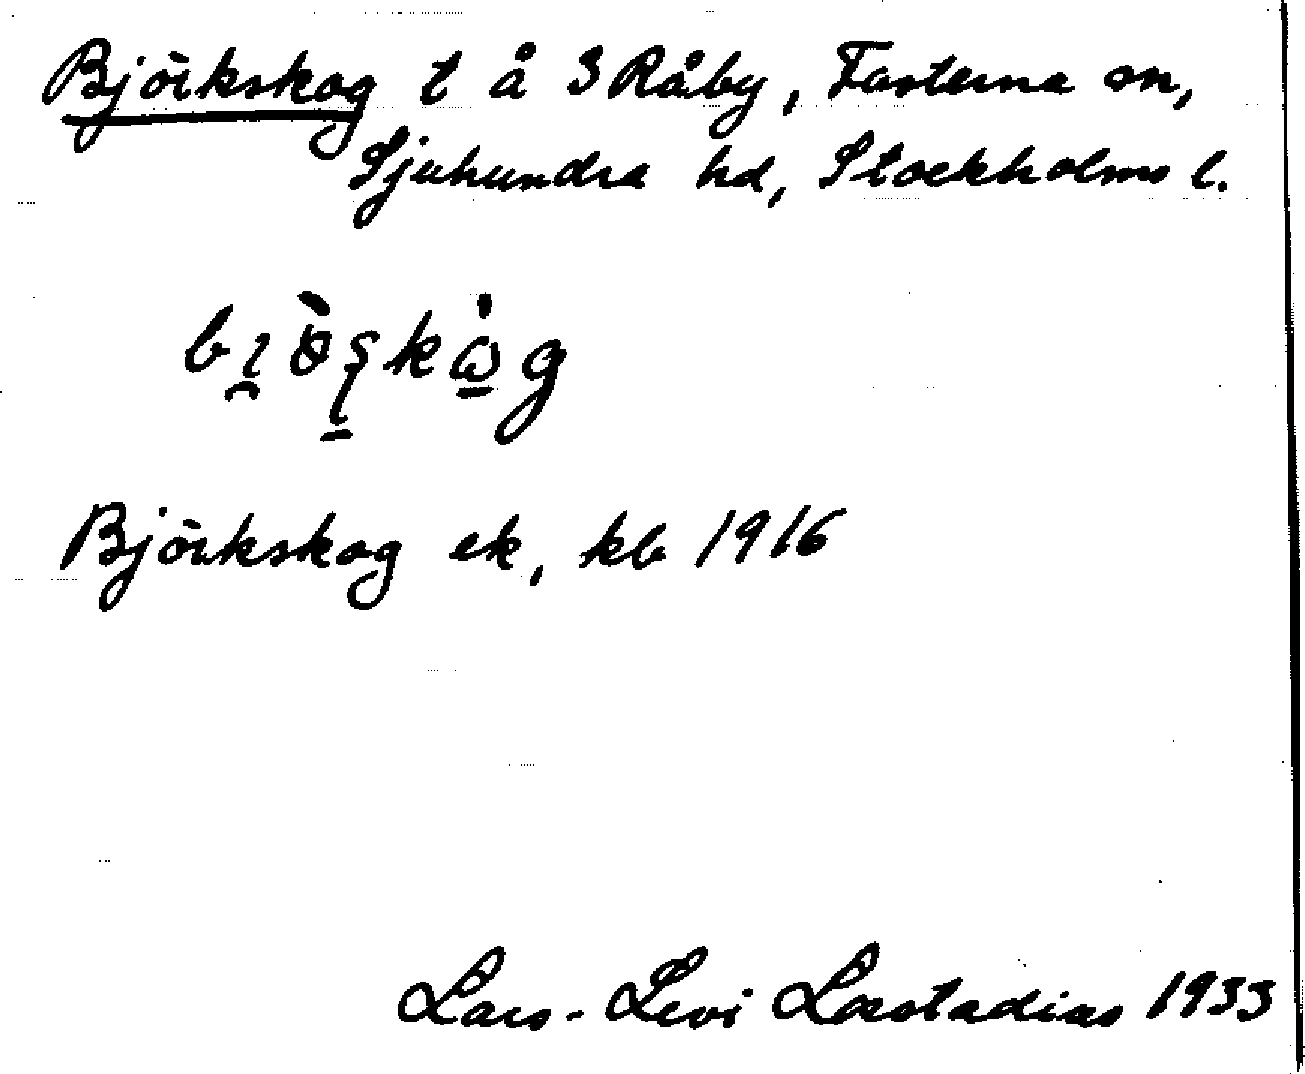 Björkskog t å 3 Råby, Fasterna sn,
Sjuhundra hd, Stockholms l.
Björkskog ek, kb 1916
Lars-Levi Læstadius 1933